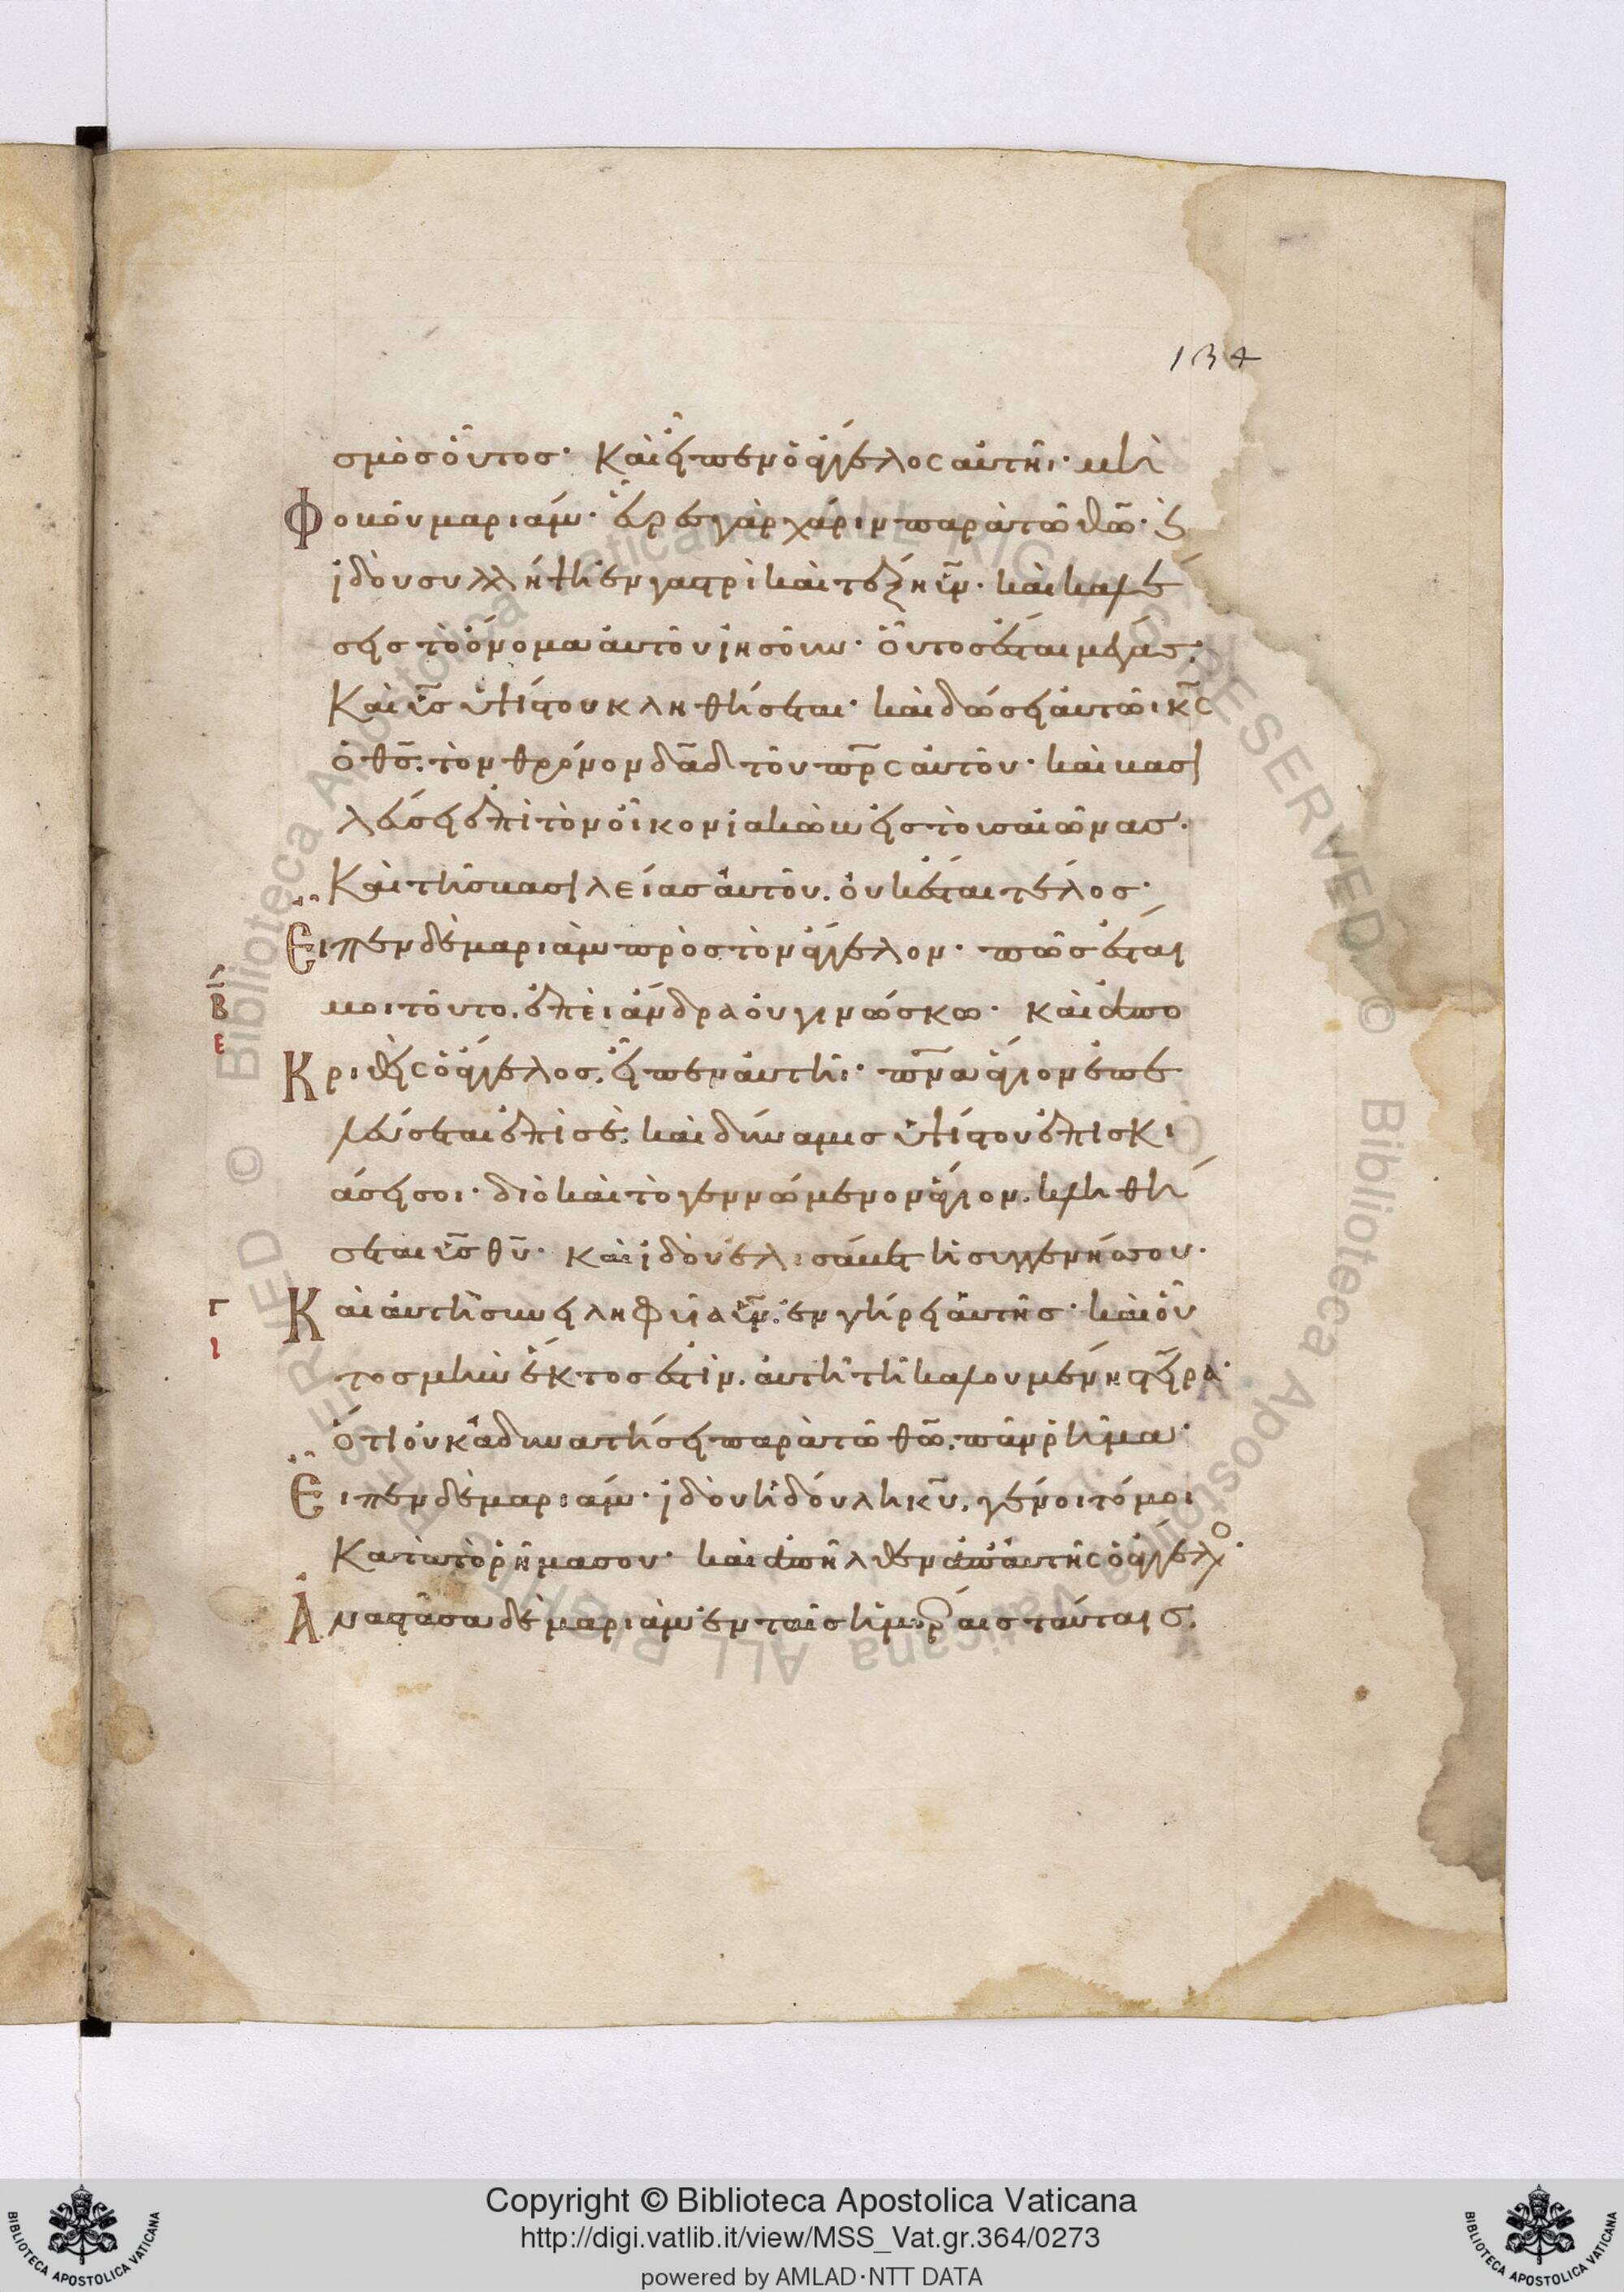 134
σμὸς οὗτος· Καὶ εἶπεν ὁ ἄγγελος αὐτῆι· μὴ
φοβοῦ μαριάμ· εὗρες γὰρ χάριν παρὰ τῶ θῶ· ϗ
ἰδοὺ συλλήψη ἐν γαστρὶ καὶ τέξη υἱν· καὶ καλέ
σεις τὸ ὄνομα αὐτοῦ ἰησοῦν· οὗτος ἔσται μέγας·
Καὶ υἱς ὑψίστου κληθήσεται· καὶ δώσει αὐτῶι κς
ὁ θς. τὸν θρόνον δαδ τοῦ πρς αὐτοῦ· καὶ βασι
λεύσει ἐπὶ τὸν οἶκον ἰακὼβ εἰς τοὺς αἰῶνας·
Καὶ τῆς βασιλείας αὐτοῦ. οὐκ ἔσται τέλος·
Εἶπεν δὲ μαριὰμ πρὸς τὸν ἄγγελον· πῶς ἔσται
Β
Ε
μοι τοῦτο. ἐπεὶ ἄνδρα οὐ γινώσκω· καὶ ἀπο
Κριθεὶς ὁ ἄγγελος. εἶπεν αὐτῆ· πνα ἅγιον ἐπε
λεύσεται ἐπὶ σέ. καὶ δύναμις ὑψίστου ἐπισκι
άσει σοι· διὸ καὶ τὸ γεννώμενον ἅγιον. κληθή
σεται υἱς θυ· καὶ ἰδοὺ ἐλισάβετ ἡ συγγενής σου·
Γ
Ι
Καὶ αὐτὴ συνειληφυῖα υἱν. ἐν γήρει αὐτῆς· καὶ οὗ
τος μὴν ἕκτος ἐστὶν. αὐτῆ τῆ καλουμένη στείρα·
ὅτι οὐκ ἀδυνατήσει παρὰ τῶ θῶ. πᾶν ῥῆμα·
Εἶπεν δὲ μαριάμ· ἰδοὺ ἡ δούλη κυ. γένοιτό μοι
Κατὰ τὸ ῥῆμα σου· καὶ ἀπῆλθεν ἀπ' αὐτῆς ὁ ἄγγελο·
Ἀναστᾶσα δὲ μαριὰμ ἐν ταῖς ἡμέραις ταύταις.
Copyright © Biblioteca Apostolica Vaticana
http://digi.vatlib.it/view/MSS_Vat.gr.364/0273
powered by AMLAD·NTT DATA
BIBLIOTECA APOSTOLICA VATICANA
BIBLIOTECA APOSTOLICA VATICANA
© Biblioteca Apostolica Vaticana ALL RIGHTS RESERVED © Biblioteca Apostolica Vaticana ALL RIGHTS RESERVED